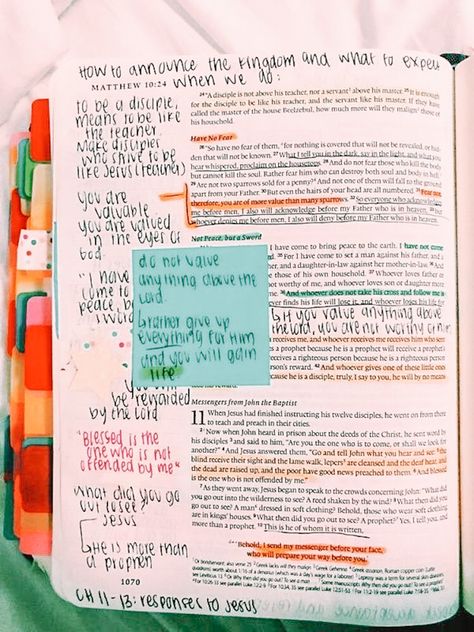 How to announce the Kingdom and what to expect
when we do:
MATTHEW 10:24
to be a disciple,
means to be like
the teacher.
Make disciples
who strive to be
like Jesus (teacher)
You are
valuable
you are valued
in the eyes of
God.
"I have
come to
peace, b
a sword
will
be rewarded
by the Lord
"Blessed is the
one who is not
offended by me"
What did you go
out to see?
Jesus
He is more than
a prophet
1070
CH 11-13: responses to Jesus
24 "A disciple is not above his teacher, nor a servant above his master. 25 It is enough
for the disciple to be like his teacher, and the servant like his master. If they have
called the master of the house Beelzebul, how much more will they malign those of
his household.
Have No Fear
26 "So have no fear of them, for nothing is covered that will not be revealed, or hid-
den that will not be known. 27 What I tell you in the dark, say in the light, and what you
hear whispered, proclaim on the housetops. 28 And do not fear those who kill the body
but cannot kill the soul. Rather fear him who can destroy both soul and body in hell.
29 Are not two sparrows sold for a penny? And not one of them will fall to the ground
apart from your Father. 30 But even the hairs of your head are all numbered. 31 Fear not,
therefore; you are of more value than many sparrows. 32 So everyone who acknowledges
me before men, I also will acknowledge before my Father who is in heaven, 33 but
whoever denies me before men, I also will deny before my Father who is in heaven.
Not Peace, but a Sword
I have come to bring peace to the earth. I have not come
35 For I have come to set a man against his father, and a
and a daughter-in-law against her mother-in-law. 36 And
be those of his own household. 37 Whoever loves father or
not worthy of me, and whoever loves son or daughter more
38 And whoever does not take his cross and follow me is
ever finds his life will lose it, and whoever loses his life fo
do not value
anything above the
Lord.
rather give up
everything for Him
and you will gain
life
if you value anything above
the Lord, you are not worthy of him
you receives me, and whoever receives me receives him who sent
a prophet because he is a prophet will receive a prophet's
receives a righteous person because he is a righteous person
person's reward. 42 And whoever gives one of these little ones
because he is a disciple, truly, I say to you, he will by no means
Messengers from John the Baptist
11 When Jesus had finished instructing his twelve disciples, he went on from there
to teach and preach in their cities.
2 Now when John heard in prison about the deeds of the Christ, he sent word by
his disciples 3 and said to him, "Are you the one who is to come, or shall we look for
another?" 4 And Jesus answered them, "Go and tell John what you hear and see: 5 the
blind receive their sight and the lame walk, lepers are cleansed and the deaf hear, and
the dead are raised up, and the poor have good news preached to them. 6 And blessed
is the one who is not offended by me."
7 As they went away, Jesus began to speak to the crowds concerning John: "What did
you go out into the wilderness to see? A reed shaken by the wind? 8 What then did you
go out to see? A man dressed in soft clothing? Behold, those who wear soft clothing
are in kings' houses. 9 What then did you go out to see? A prophet? Yes, I tell you, and
more than a prophet. 10 This is he of whom it is written,
"'Behold, I send my messenger before your face,
who will prepare your way before you.'